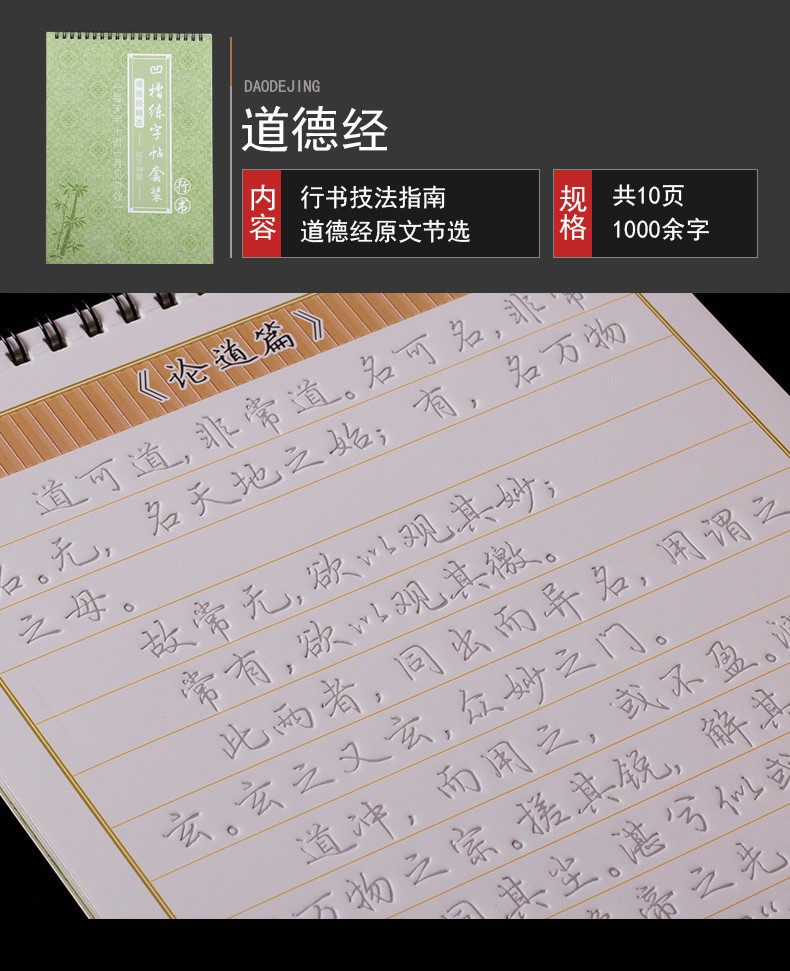 凹槽练字帖套装
行书
DAODEJING
道德经
内容
行书技法指南
道德经原文节选
规格
共10页
1000余字
《论道篇》
道可道，非常道。名可名，非常
名。无，名天地之始；有，名万物
之母。
故常无，欲以观其妙；
常有，欲以观其徼。
此两者，同出而异名，用谓之
玄。玄之又玄，众妙之门。
道冲，而用之，或不盈。
万物之宗。搓其锐，解其
同其尘。湛兮似或
帝之先